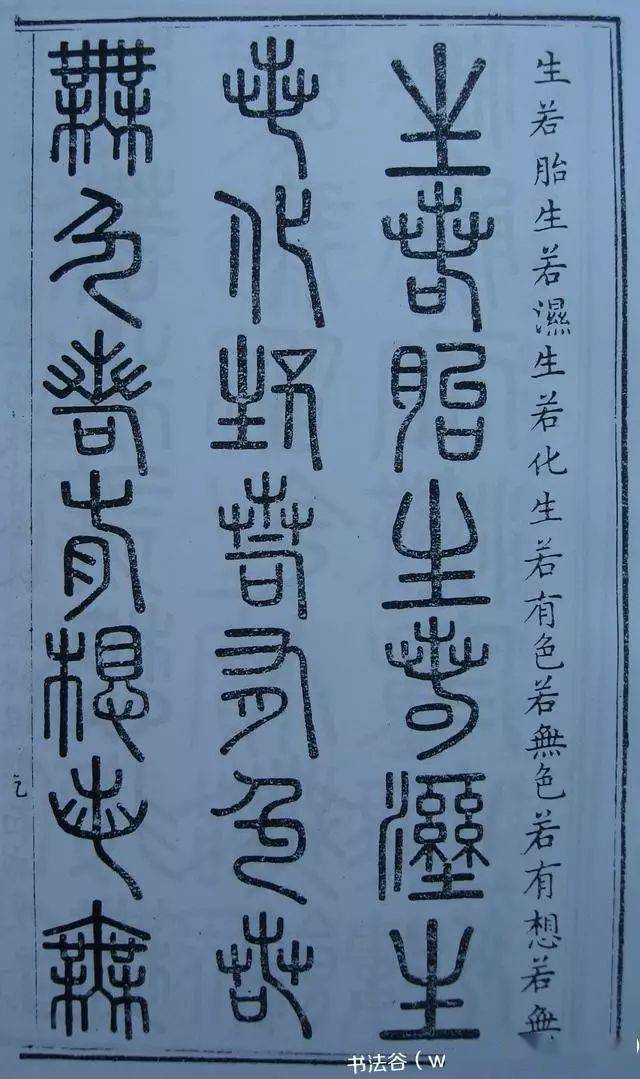 生若胎生若濕生若化生若有色若無色若有想若無
生若胎生若溼生
若化生若有色若
無色若有想若無
书法谷（w